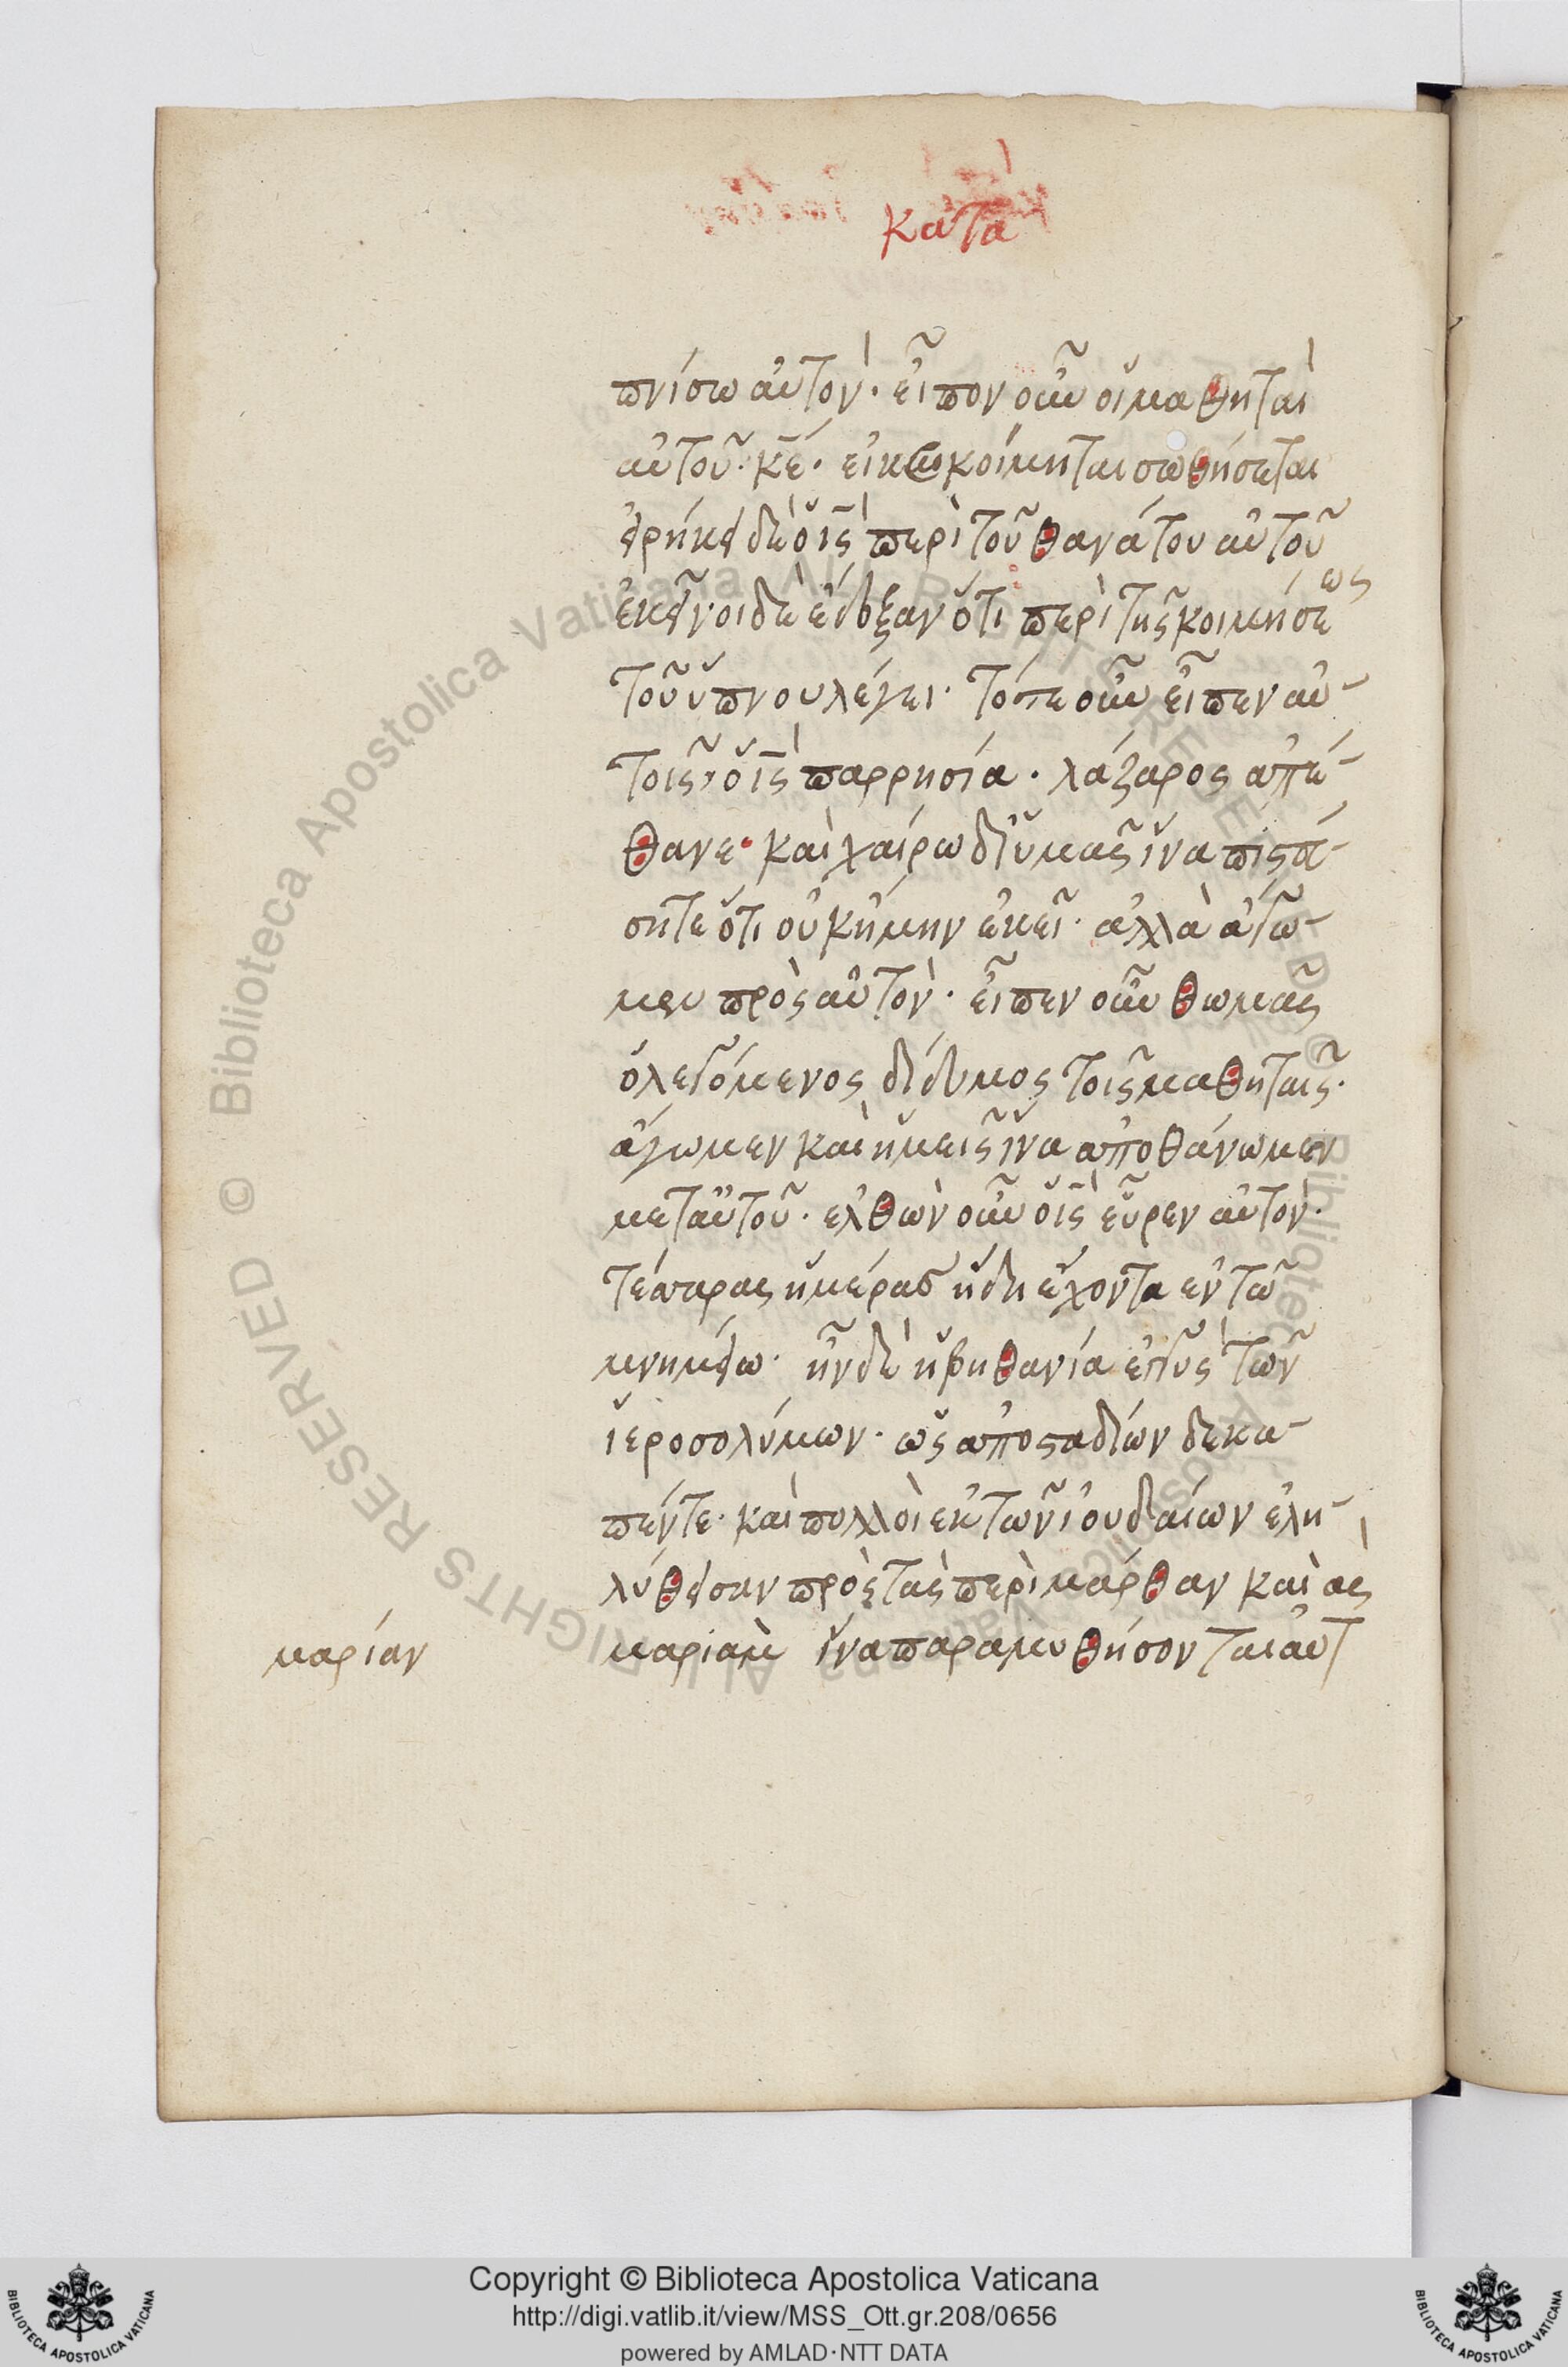 κατὰ
πνίσω αὐτόν· εἶπον οὖν οἱ μαθηταὶ
αὐτοῦ· κε̄· εἰ κεκοίμηται σωθήσεται
εἰρήκει δὲ ὁ ις̄ περὶ τοῦ θανάτου αὐτοῦ
ἐκεῖνοι δὲ ἔδοξαν ὅτι περὶ τῆς κοιμήσεως
τοῦ ὕπνου λέγει· τότε οὖν εἶπεν αὐ-
τοῖς, ὁ ις̄ παρρησία· λάζαρος ἀπέ-
θανε· καὶ χαίρω δι ὑμᾶς ἵνα πιστεύ-
σητε ὅτι οὐκ ἤμην ἐκεῖ· ἀλλὰ ἄγω-
μεν πρὸς αὐτόν· εἶπεν οὖν θωμᾶς
ὁ λεγόμενος δίδυμος τοῖς μαθηταῖς·
ἄγωμεν καὶ ἡμεῖς ἵνα ἀποθάνωμεν
μετ αὐτοῦ· ἐλθὼν οὖν ὁ ις̄ εὗρεν αὐτόν·
τέσσαρας ἡμέρας ἤδη ἔχοντα ἐν τῶ
μνημείω· ἦν δὲ ἡ βηθανία ἐγγὺς τῶν
ἱεροσολύμων· ὡς ἀπὸ σταδίων δεκα-
πέντε· καὶ πολλοὶ ἐκ τῶν ἰουδαίων ἐλη-
λύθεισαν πρὸς τὰς περὶ μάρθαν καὶ ας
μαριὰμ ἵνα παραμυθήσονται αὐτ
μαρίαν
Copyright © Biblioteca Apostolica Vaticana
http://digi.vatlib.it/view/MSS_Ott.gr.208/0656
powered by AMLAD·NTT DATA